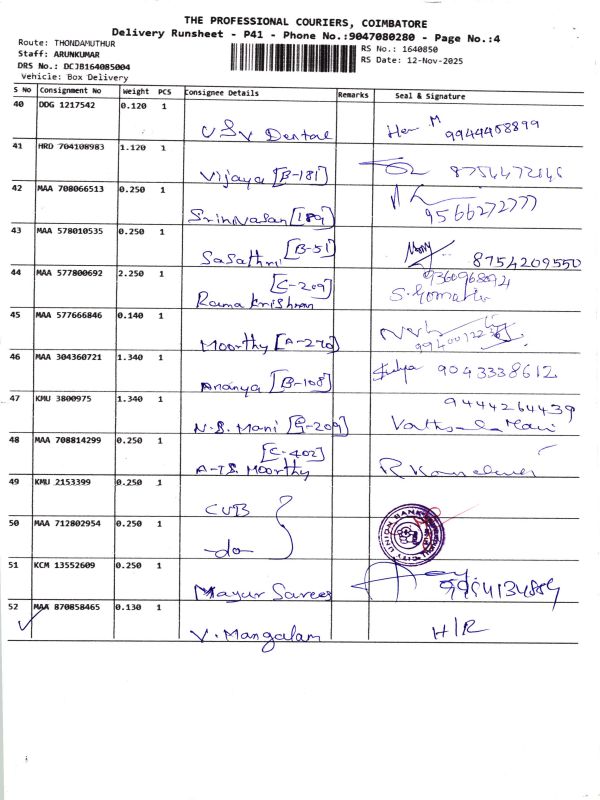 THE PROFESSIONAL COURIERS, COIMBATORE
Delivery Runsheet - P41 - Phone No.:9047080280 - Page No.:4
Route: THONDAMUTHUR
Staff: ARUNKUMAR
DRS No.: DCJB164085004
Vehicle: Box Delivery
RS No.: 1640850
RS Date: 12-Nov-2025
S No Consignment No Weight PCS Consignee Details Remarks Seal & Signature
40 DDG 1217542 0.120 1
USV Dental 9944408899
41 HRD 704108983 1.120 1
Vijaya [B-181]
42 MAA 708066513 0.250 1
Srinivasan [189] 9566272777
43 MAA 578010535 0.250 1
Sasathri [B-51] 8754209550
44 MAA 577800692 2.250 1
Rama Krishnan [C-209] 9360968924
S. Gomathi
45 MAA 577666846 0.140 1
Moorthy [A-270]
46 MAA 304360721 1.340 1
Ananya [B-108] 9043338612
47 KMU 3800975 1.340 1
N.S. Mani [G-209] 9444264439
Vathsala Mani
48 MAA 708814299 0.250 1
[C-402]
A-TS. Moorthy
49 KMU 2153399 0.250 1
CUB
50 MAA 712802954 0.250 1
-do-
CITY UNION BANK
51 KCM 13552609 0.250 1
Mayur Sarees
52 MAA 870858465 0.130 1
V. Mangalam H/R